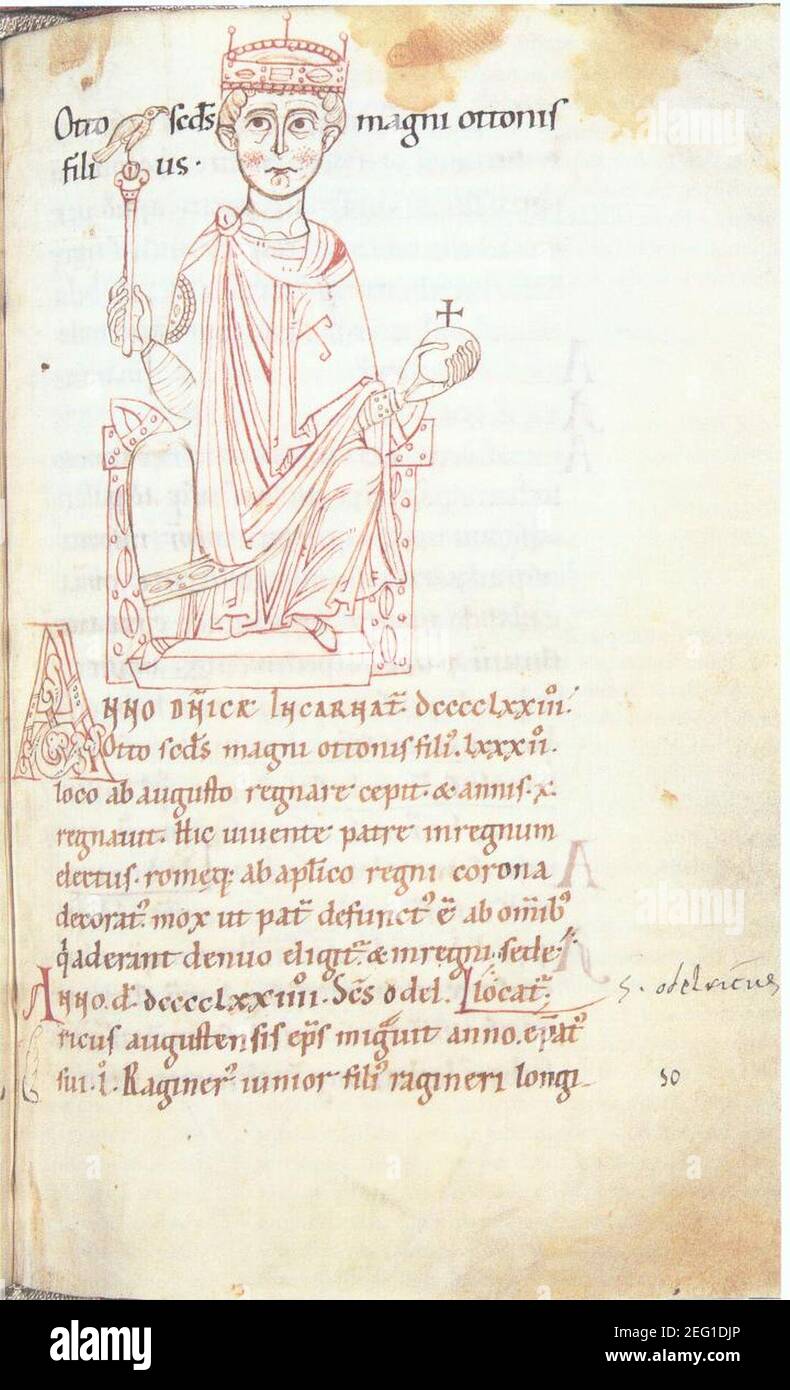 Otto scds magni ottonis
fili us.
Anno dnicæ Incarnat. dcccclxxiiii.
Otto scds magni ottonis fili'. lxxxii.
loco ab augusto regnare cepit. & annis. x.
regnauit. Hic uiuente patre in regnum
electus. romeq; ab aplico regni corona
decorat' mox ut pat' defunct' e ab omib'
q aderant denuo eligit. & in regni sede
Anno. d. dcccclxxiiii. Scs odel. locat'
ricus augustensis eps migrauit anno. epat'
sui. l. Raginer' iunior fili' ragineri longi
S. odelricus
50
alamy
alamy
Image ID: 2EG1DJP
www.alamy.com